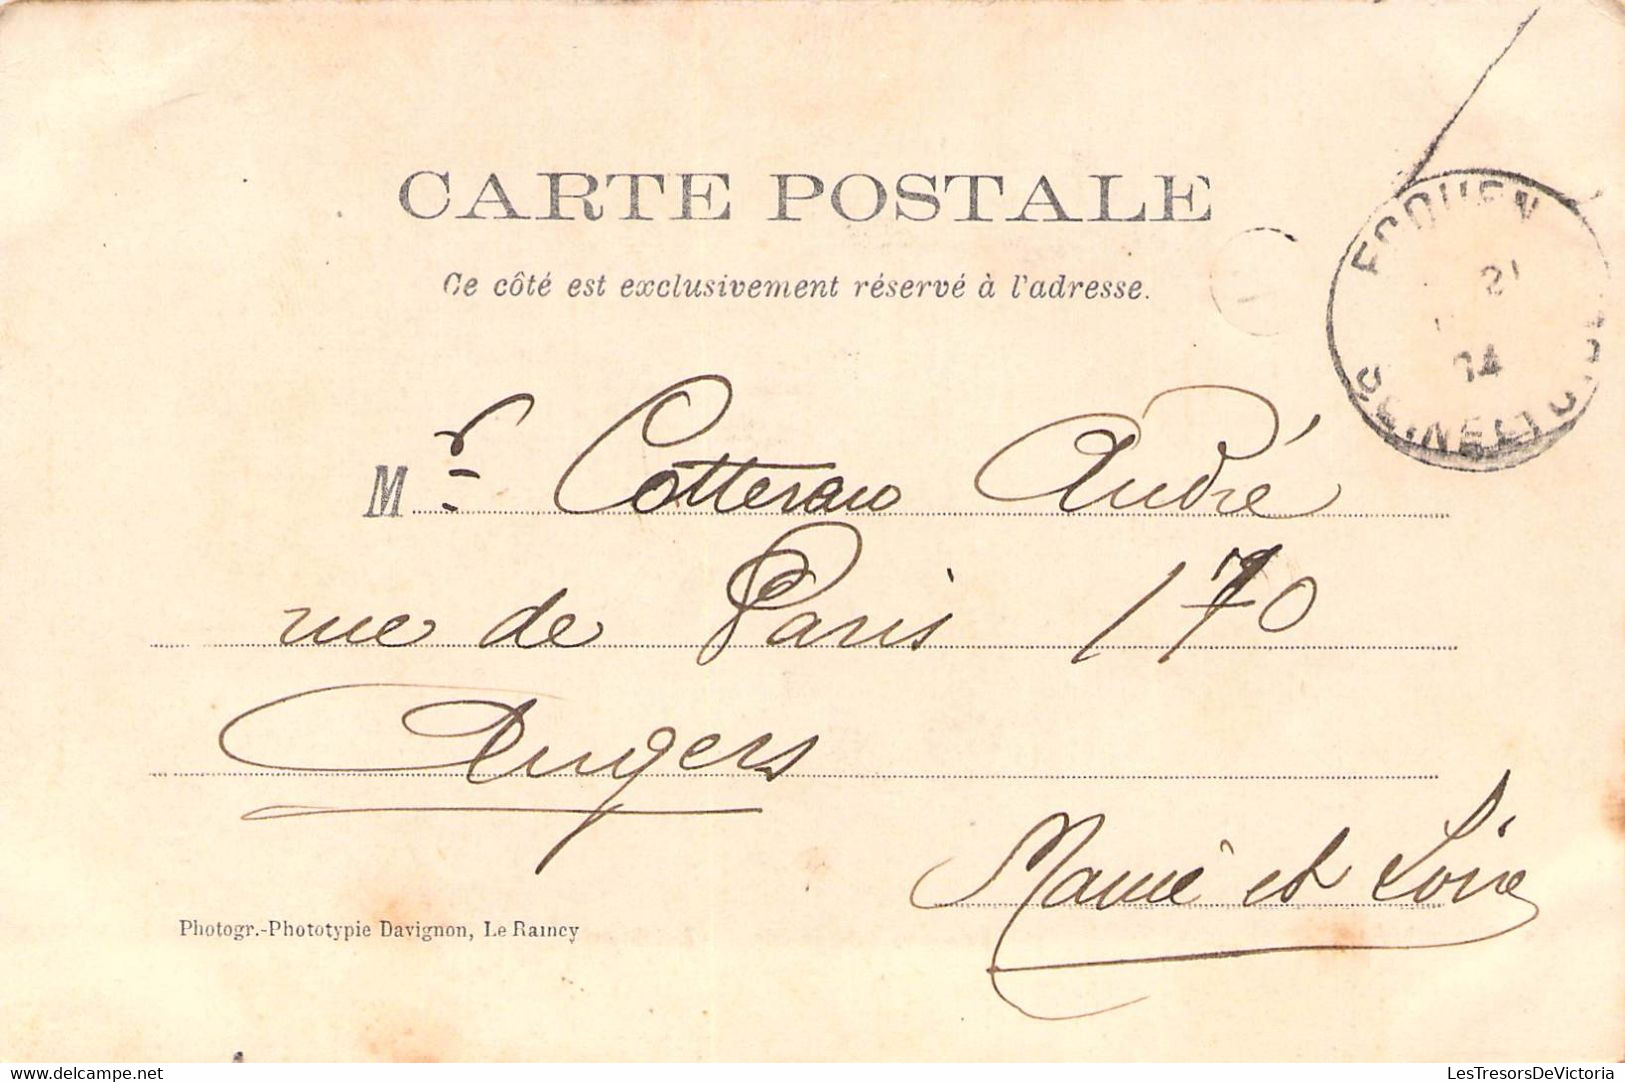 CARTE POSTALE
Ce côté est exclusivement réservé à l'adresse.
ECOUEN
21
14
SEINE-ET-OISE
Mr Cottereau André
rue de Paris 170
Angers
Maine et Loire
Photogr.-Phototypie Davignon, Le Raincy
delcampe.net
LesTresorsDeVictoria